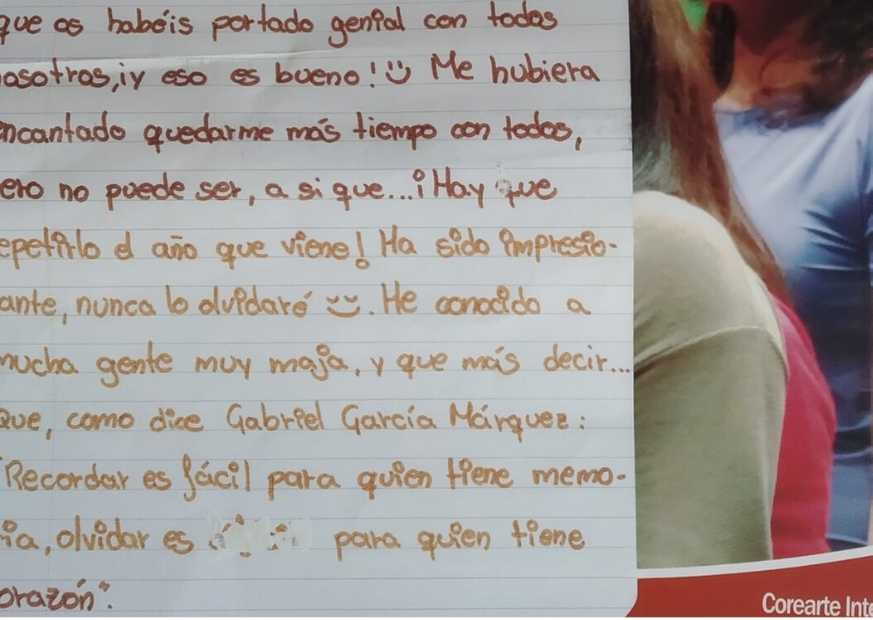 que os habéis portado genial con todos
osotros, ¡y eso es bueno! Me hubiera
ncantado quedarme más tiempo con todos,
ero no puede ser, a si que... ¡Hay que
epetirlo el año que viene! Ha sido impresio-
ante, nunca lo olvidaré. He conocido a
mucha gente muy maja, y que más decir...
Que, como dice Gabriel García Márquez:
"Recordar es fácil para quien tiene memo-
ria, olvidar es para quien tiene
orazón".
Corearte Inte